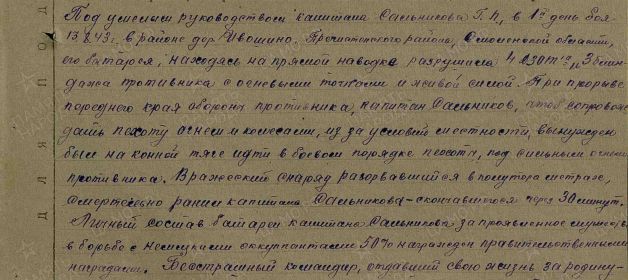 Под умелым руководством капитана Сальникова Г.П., в 1й день боя
13.8.43 г. в районе дер. Ивошино, Пречистенского района, Смоленской области,
его батарея, находясь на прямой наводке разрушила 4 ДЗОТ'а, 3 блин-
дажа противника с огневыми точками и живой силой. При прорыве
переднего края обороны противника, капитан Сальников, чтоб сопровож-
дать пехоту огнем и колесами, из за условий местности, вынужден
был на конной тяге идти в боевом порядке пехоты, под сильным огнем
противника. Вражеский снаряд разорвавшийся в полутора метрах,
смертельно ранил капитана Сальникова - скончавшегося через 30 минут.
Личный состав батареи капитана Сальникова за проявленное мужество
в борьбе с немецкими оккупантами 50% награжден правительственными
наградами. Бесстрашный командир, отдавший свою жизнь за родину-
ДЛЯ ПОД